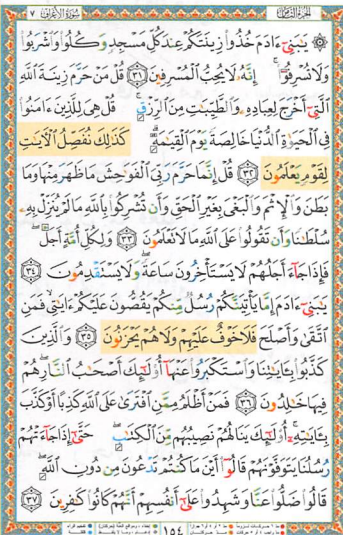 الجزء الثامن سورة الأعراف ٧
۞ يَٰبَنِىٓ ءَادَمَ خُذُوا۟ زِينَتَكُمْ عِندَ كُلِّ مَسْجِدٍ وَكُلُوا۟ وَٱشْرَبُوا۟
وَلَا تُسْرِفُوٓا۟ ۚ إِنَّهُۥ لَا يُحِبُّ ٱلْمُسْرِفِينَ ٣١ قُلْ مَنْ حَرَّمَ زِينَةَ ٱللَّهِ
ٱلَّتِىٓ أَخْرَجَ لِعِبَادِهِۦ وَٱلطَّيِّبَٰتِ مِنَ ٱلرِّزْقِ ۚ قُلْ هِىَ لِلَّذِينَ ءَامَنُوا۟
فِى ٱلْحَيَوٰةِ ٱلدُّنْيَا خَالِصَةً يَوْمَ ٱلْقِيَٰمَةِ ۗ كَذَٰلِكَ نُفَصِّلُ ٱلْءَايَٰتِ
لِقَوْمٍ يَعْلَمُونَ ٣٢ قُلْ إِنَّمَا حَرَّمَ رَبِّىَ ٱلْفَوَٰحِشَ مَا ظَهَرَ مِنْهَا وَمَا
بَطَنَ وَٱلْإِثْمَ وَٱلْبَغْىَ بِغَيْرِ ٱلْحَقِّ وَأَن تُشْرِكُوا۟ بِٱللَّهِ مَا لَمْ يُنَزِّلْ بِهِۦ
سُلْطَٰنًا وَأَن تَقُولُوا۟ عَلَى ٱللَّهِ مَا لَا تَعْلَمُونَ ٣٣ وَلِكُلِّ أُمَّةٍ أَجَلٌ ۖ
فَإِذَا جَآءَ أَجَلُهُمْ لَا يَسْتَأْخِرُونَ سَاعَةً ۖ وَلَا يَسْتَقْدِمُونَ ٣٤
يَٰبَنِىٓ ءَادَمَ إِمَّا يَأْتِيَنَّكُمْ رُسُلٌ مِّنكُمْ يَقُصُّونَ عَلَيْكُمْ ءَايَٰتِى ۙ فَمَنِ
ٱتَّقَىٰ وَأَصْلَحَ فَلَا خَوْفٌ عَلَيْهِمْ وَلَا هُمْ يَحْزَنُونَ ٣٥ وَٱلَّذِينَ
كَذَّبُوا۟ بِـَٔايَٰتِنَا وَٱسْتَكْبَرُوا۟ عَنْهَآ أُو۟لَٰٓئِكَ أَصْحَٰبُ ٱلنَّارِ ۖ هُمْ
فِيهَا خَٰلِدُونَ ٣٦ فَمَنْ أَظْلَمُ مِمَّنِ ٱفْتَرَىٰ عَلَى ٱللَّهِ كَذِبًا أَوْ كَذَّبَ
بِـَٔايَٰتِهِۦٓ ۚ أُو۟لَٰٓئِكَ يَنَالُهُمْ نَصِيبُهُم مِّنَ ٱلْكِتَٰبِ ۖ حَتَّىٰٓ إِذَا جَآءَتْهُمْ
رُسُلُنَا يَتَوَفَّوْنَهُمْ قَالُوٓا۟ أَيْنَ مَا كُنتُمْ تَدْعُونَ مِن دُونِ ٱللَّهِ ۖ
قَالُوا۟ ضَلُّوا۟ عَنَّا وَشَهِدُوا۟ عَلَىٰٓ أَنفُسِهِمْ أَنَّهُمْ كَانُوا۟ كَٰفِرِينَ ٣٧
١٥٤